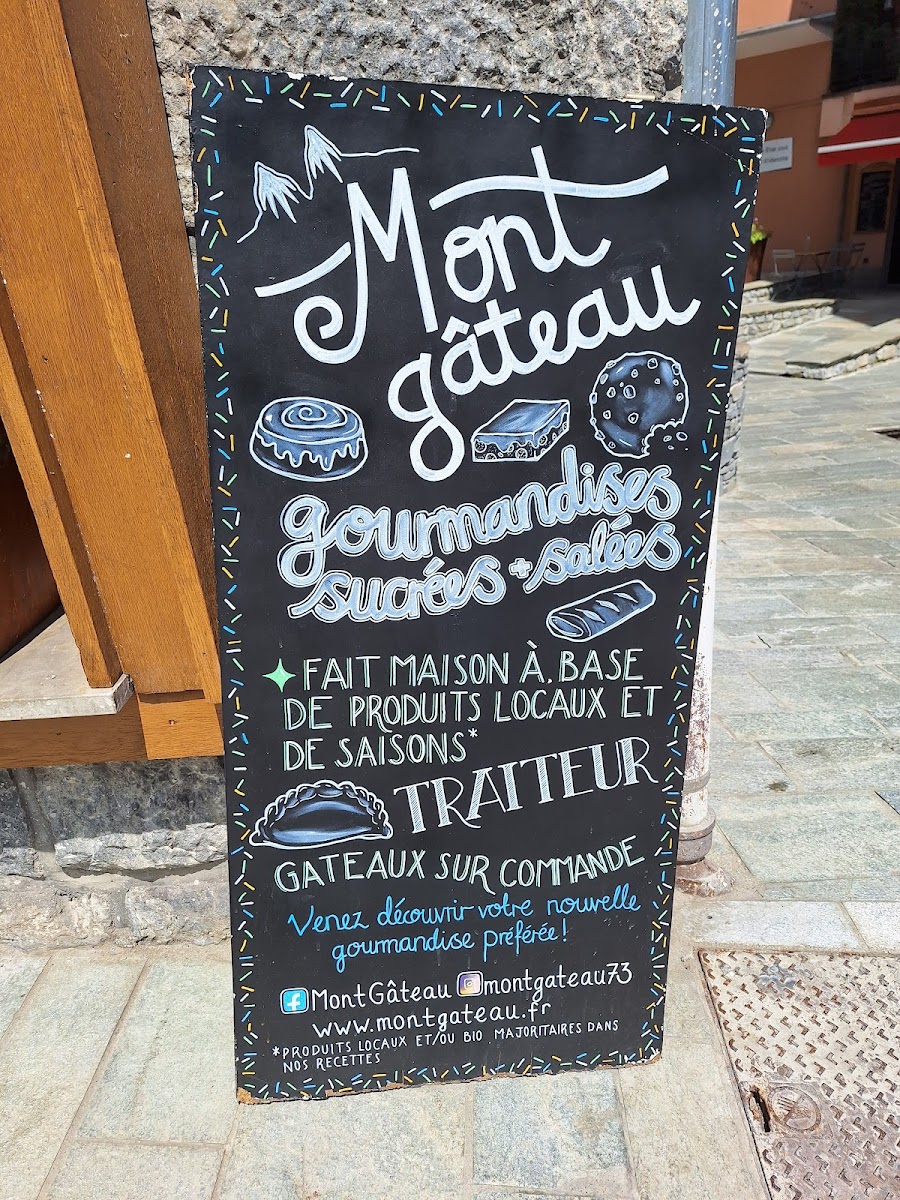 Mont
gâteau
gourmandises
sucrées + salées
FAIT MAISON À BASE
DE PRODUITS LOCAUX ET
DE SAISONS*
TRAITEUR
GATEAUX SUR COMMANDE
Venez découvrir votre nouvelle
gourmandise préférée!
MontGâteau montgateau73
www.montgateau.fr
*PRODUITS LOCAUX ET/OU BIO MAJORITAIRES DANS
NOS RECETTES